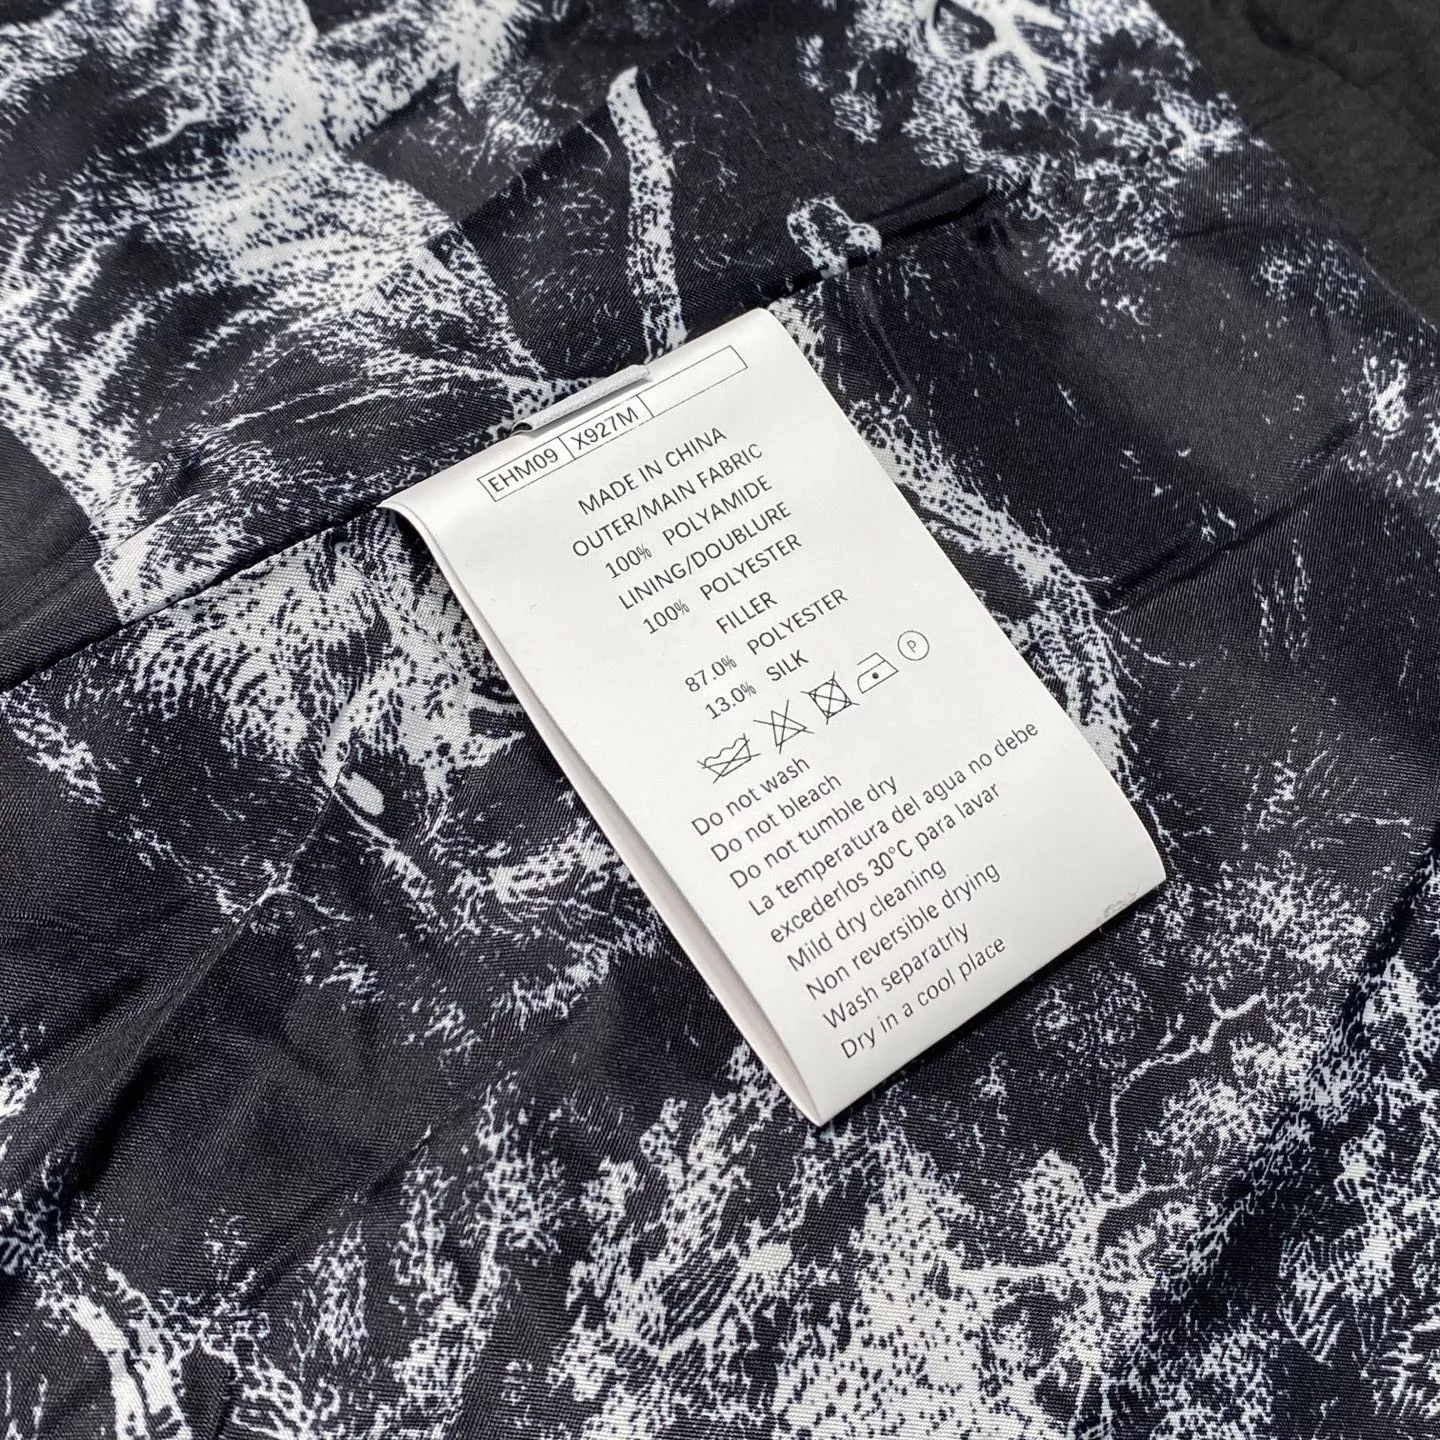 EHM09 X927M
MADE IN CHINA
OUTER/MAIN FABRIC
100% POLYAMIDE
LINING/DOUBLURE
100% POLYESTER
FILLER
87.0% POLYESTER
13.0% SILK
P
Do not wash
Do not bleach
Do not tumble dry
La temperatura del agua no debe
excederlos 30°C para lavar
Mild dry cleaning
Non reversible drying
Wash separatrly
Dry in a cool place